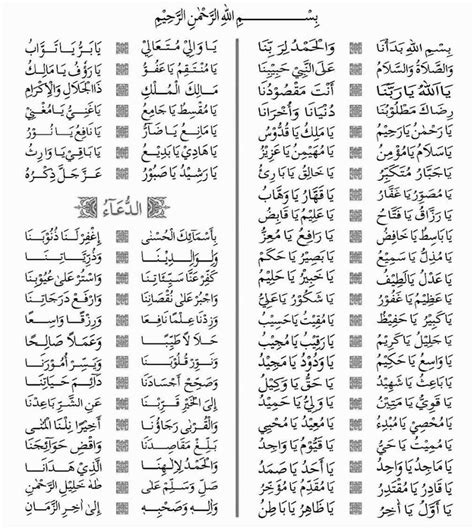 بِسْمِ اللهِ الرَّحْمٰنِ الرَّحِيْمِ
بِسْمِ اللهِ بَدَأْنَا وَالْحَمْدُ لِرَبِّنَا
وَالصَّلَاةُ وَالسَّلَامُ عَلَى النَّبِيِّ حَبِيْبِنَا
يَا اَللهُ يَا رَبَّنَا أَنْتَ مَقْصُوْدُنَا
رِضَاكَ مَطْلُوْبُنَا دُنْيَانَا وَأُخْرَانَا
يَا رَحْمٰنُ يَا رَحِيْمُ يَا مَلِكُ يَا قُدُّوْسُ
يَا سَلَامُ يَا مُؤْمِنُ يَا مُهَيْمِنُ يَا عَزِيْزُ
يَا جَبَّارُ يَا مُتَكَبِّرُ يَا خَالِقُ يَا بَارِئُ
يَا مُصَوِّرُ يَا غَفَّارُ يَا قَهَّارُ يَا وَهَّابُ
يَا رَزَّاقُ يَا فَتَّاحُ يَا عَلِيْمُ يَا قَابِضُ
يَا بَاسِطُ يَا خَافِضُ يَا رَافِعُ يَا مُعِزُّ
يَا مُذِلُّ يَا سَمِيْعُ يَا بَصِيْرُ يَا حَكَمُ
يَا عَدْلُ يَا لَطِيْفُ يَا خَبِيْرُ يَا حَلِيْمُ
يَا عَظِيْمُ يَا غَفُوْرُ يَا شَكُوْرُ يَا عَلِيُّ
يَا كَبِيْرُ يَا حَفِيْظُ يَا مُقِيْتُ يَا حَسِيْبُ
يَا رَقِيْبُ يَا مُجِيْبُ
يَا وَاسِعُ يَا حَكِيْمُ يَا وَدُوْدُ يَا مَجِيْدُ
يَا شَهِيْدُ يَا حَقُّ يَا وَكِيْلُ
يَا قَوِيُّ يَا مَتِيْنُ يَا حَمِيْدُ
يَا مُبْدِئُ يَا مُعِيْدُ يَا مُحْيِيْ
يَا مُمِيْتُ يَا حَيُّ يَا قَيُّوْمُ يَا وَاجِدُ
يَا مَاجِدُ يَا وَاحِدُ يَا أَحَدُ يَا صَمَدُ
يَا قَادِرُ
يَا أَوَّلُ يَا آخِرُ يَا ظَاهِرُ يَا بَاطِنُ
يَا وَالِيْ يَا مُتَعَالِيْ يَا بَرُّ يَا تَوَّابُ
يَا مُنْتَقِمُ يَا عَفُوُّ يَا رَؤُفُ يَا مَالِكُ
يَا مَالِكَ الْمُلْكِ ذَاالْجَلَالِ وَالْإِكْرَامِ
يَا مُقْسِطُ يَا جَامِعُ يَا غَنِيُّ يَا مُغْنِيْ
يَا مَانِعُ يَا ضَآرُّ يَا نَافِعُ يَا نُوْرُ
يَا هَادِيْ يَا بَدِيْعُ يَا بَاقِيْ يَا وَارِثُ
يَا رَشِيْدُ يَا صَبُوْرُ عَزَّ جَلَّ ذِكْرُهُ
الدُّعَاءُ
بِأَسْمَائِكَ الْحُسْنَى اِغْفِرْ لَنَا ذُنُوْبَنَا
وَلِوَالِدِيْنَا وَذُرِّيَّاتِنَا
كَفِّرْ عَنَّا سَيِّئَاتِنَا وَاسْتُرْ عَلَى عُيُوْبِنَا
وَاجْبُرْ عَلَى نُقْصَانِنَا وَارْفَعْ دَرَجَاتِنَا
وَزِدْنَا عِلْمًا نَافِعًا وَرِزْقًا وَاسِعًا
حَلَالًا طَيِّبًا وَعَمَلًا صَالِحًا
وَنَوِّرْ قُلُوْبَنَا وَيَسِّرْ أُمُوْرَنَا
وَصَحِّحْ أَجْسَادَنَا دَائِمَ حَيَاتِنَا
إِلَى الْخَيْرِ قَرِّبْنَا عَنِ الشَّرِّ بَاعِدْنَا
وَالْقُرْبَى رَجَاؤُنَا أَخِيْرًا نِلْنَا الْمُنَى
بَلِّغْ مَقَاصِدَنَا وَاقْضِ حَوَائِجَنَا
وَالْحَمْدُ لِإِلٰهِنَا الَّذِيْ هَدَانَا
صَلِّ وَسَلِّمْ عَلَى طٰهَ خَلِيْلِ الرَّحْمٰنِ
وَآلِهِ وَصَحْبِهِ إِلَى آخِرِ الزَّمَانِ